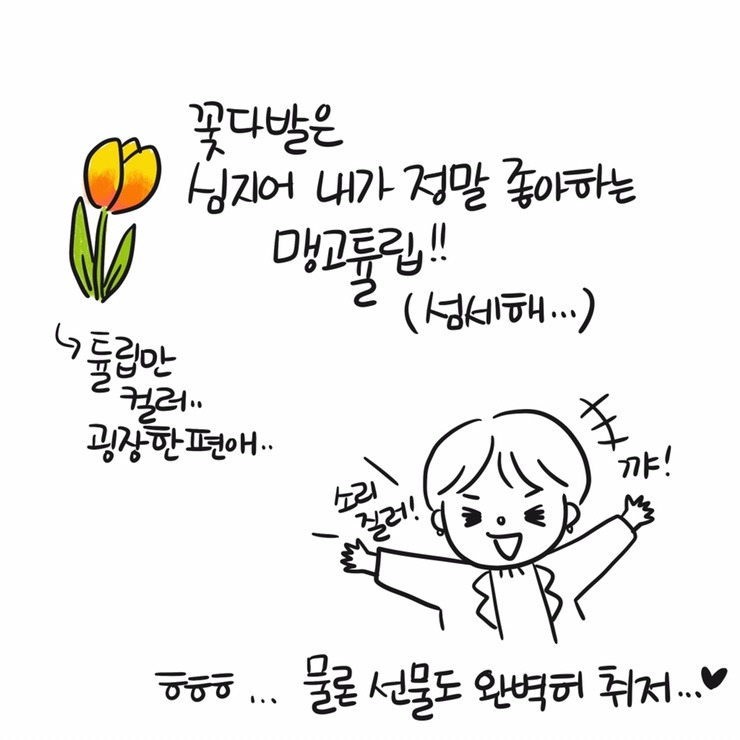 꽃다발은
심지어 내가 정말 좋아하는
맹고튤립!!
(섬세해...)
튤립만
컬러..
굉장한편애..
소리
질러!
꺄!
ㅎㅎㅎ... 물론 선물도 완벽허 취저...♥